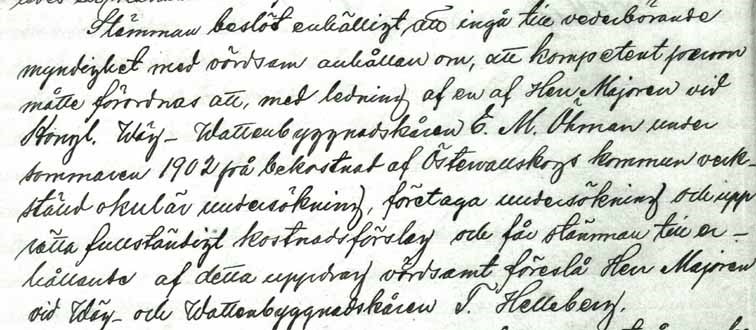 Stämman beslöt enhälligt att ingå till vederbörande
myndighet med vördsam anhållan om, att kompetent person
måtte förordnas att, med ledning af en af Herr Majoren vid
Kongl. Wäg- Wattenbyggnadskåren E. M. Öhman under
sommaren 1902 på bekostnad af Östervallskogs kommun verk-
ställd okulär undersökning, företaga undersökning och upp
rätta fullständigt kostnadsförslag och får stämman till er-
hållande af detta uppdrag vördsamt föreslå Herr Majoren
vid Wäg- och Wattenbyggnadskåren T. Helleberg.